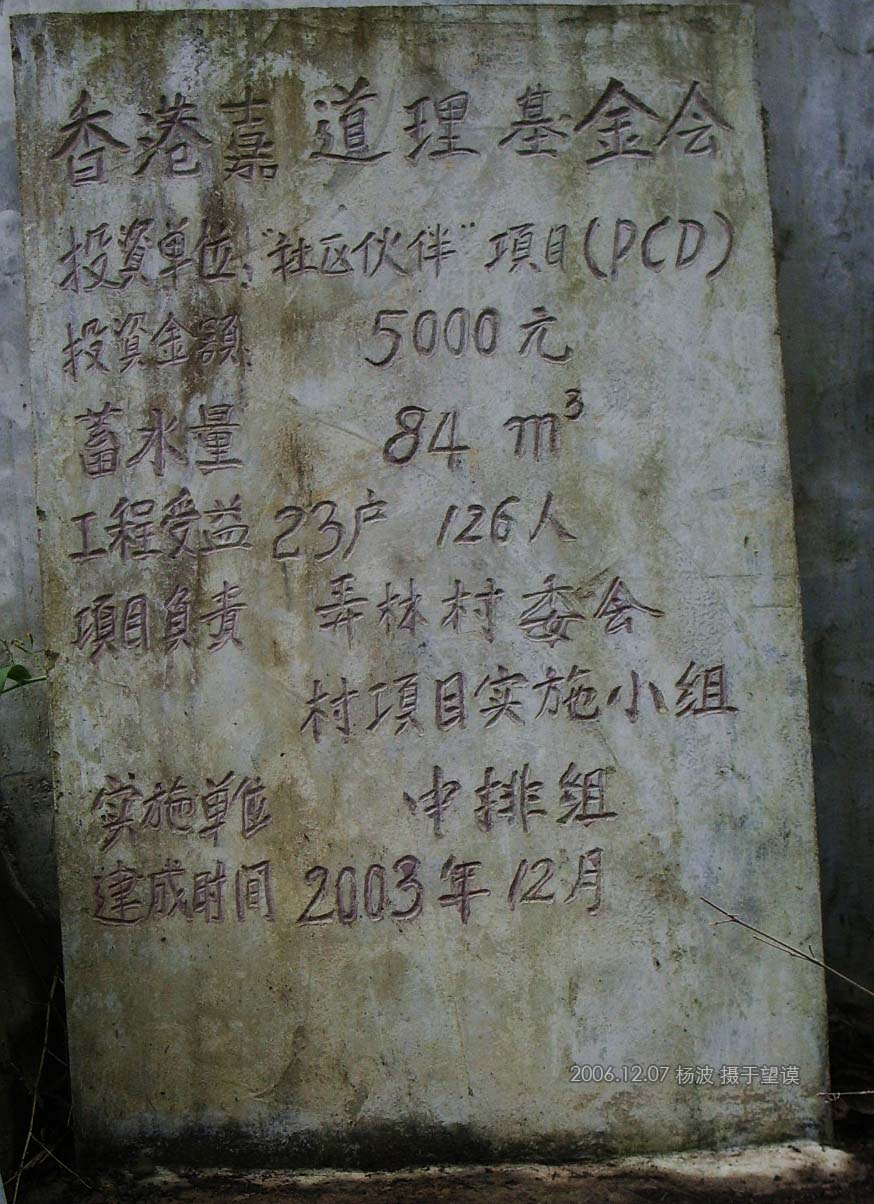 香港嘉道理基金会
投資单位："社区伙伴"項目(PCD)
投資金额： 5000元
蓄水量 84 m³
工程受益 23户 126人
項目負責 弄林村委会
村項目实施小组
实施单位 中排组
建成时间 2003年12月
2006.12.07 杨波 摄于望谟